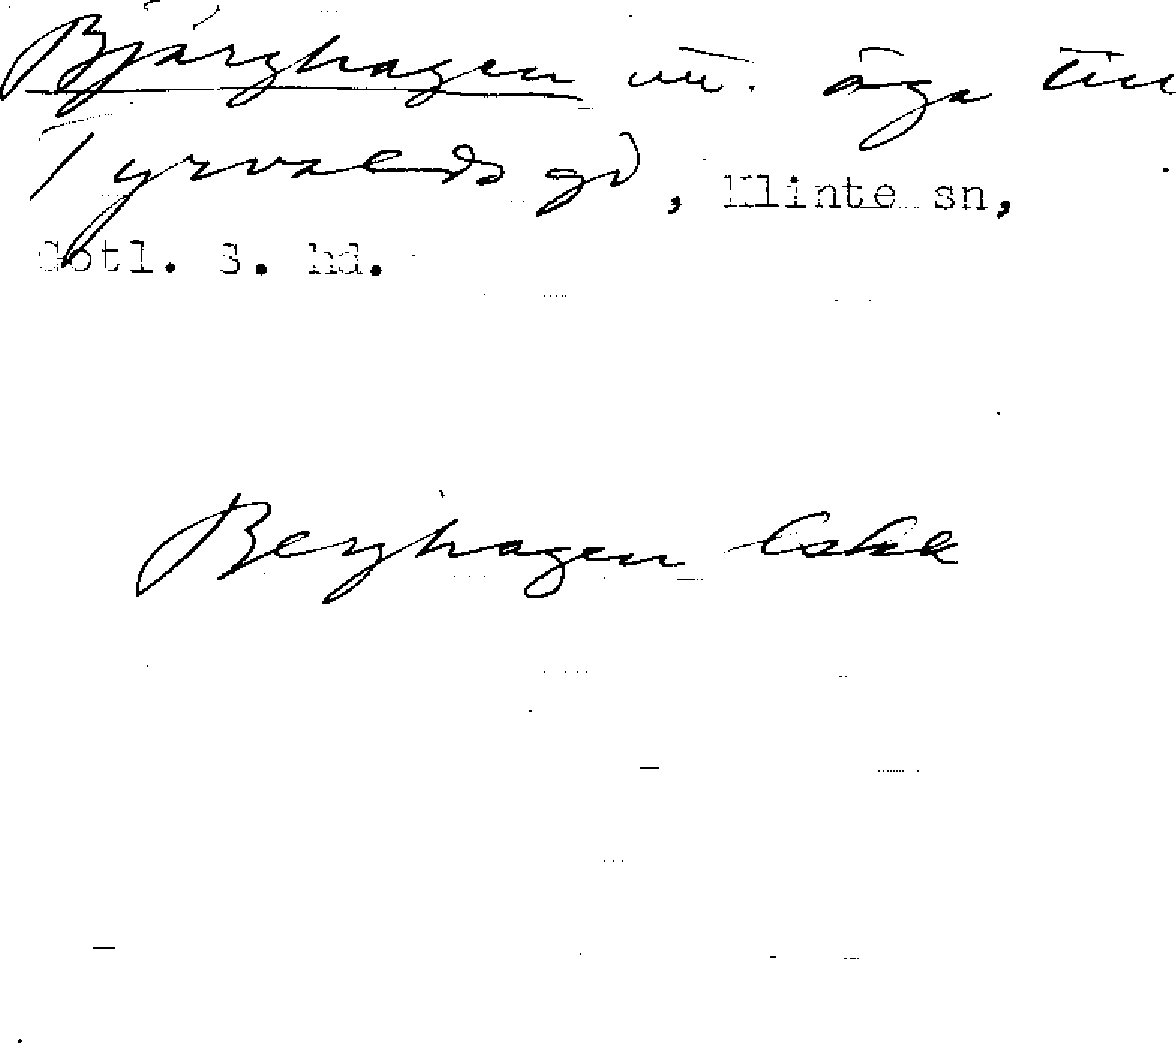 Bjärghagen nu. äga till
Tyrvalds gd, Klinte sn,
Gotl. S. hd.
Berghagen Eskk